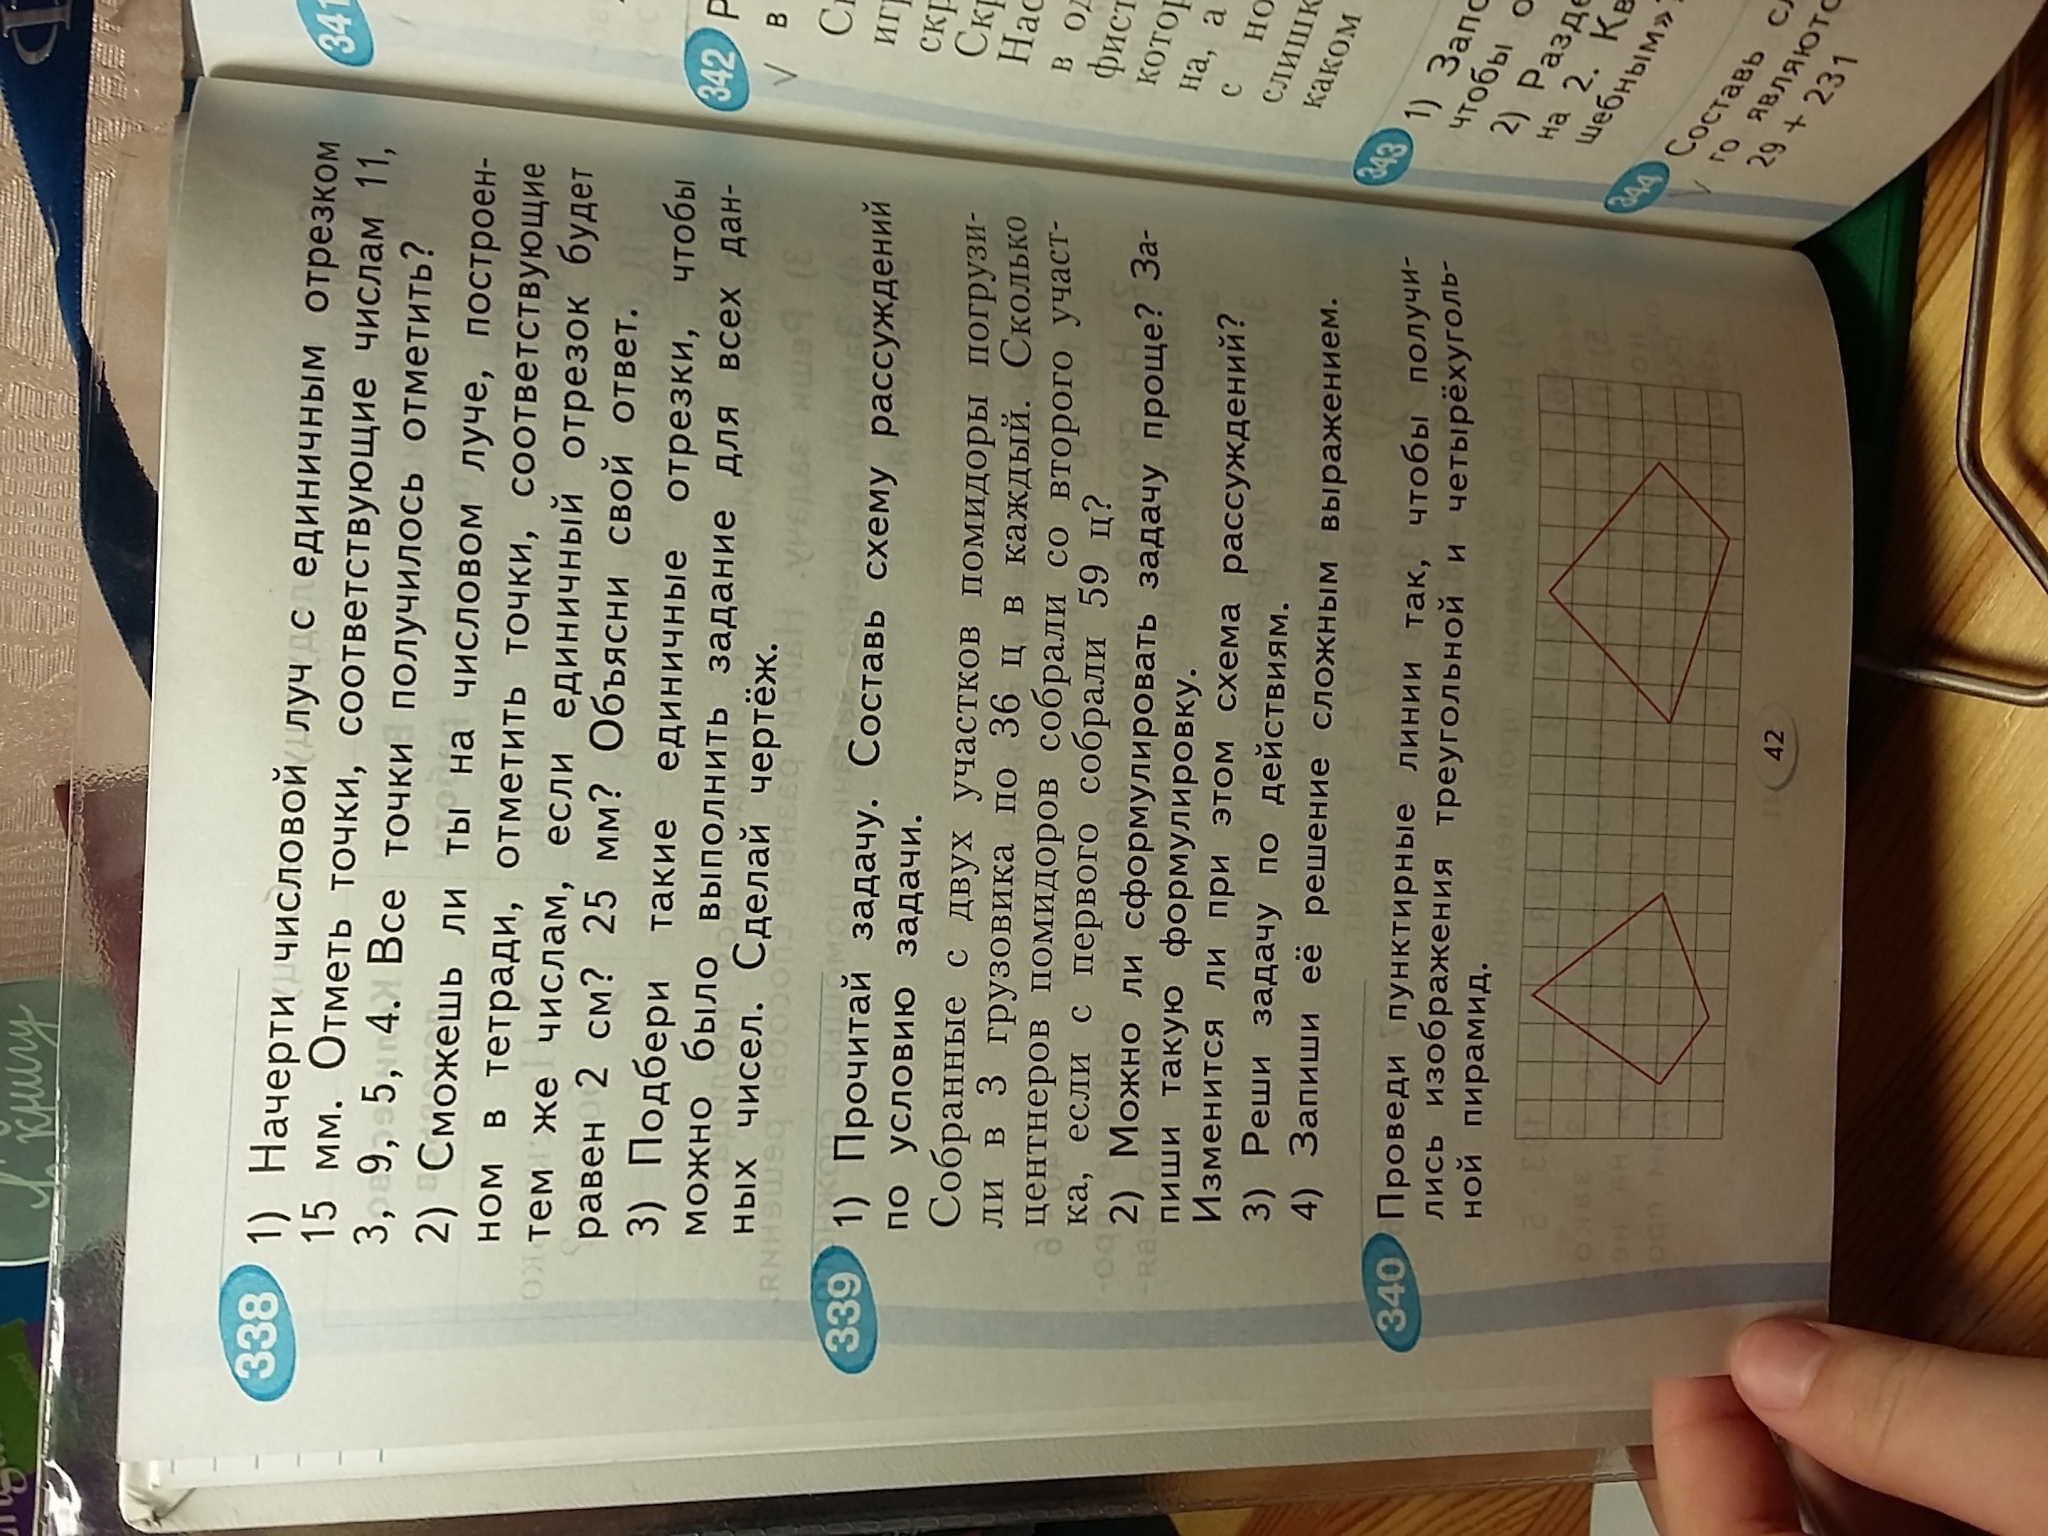 338
1) Начерти числовой луч с единичным отрезком
15 мм. Отметь точки, соответствующие числам 11,
3, 9, 5, 4. Все точки получилось отметить?
2) Сможешь ли ты на числовом луче, построен-
ном в тетради, отметить точки, соответствующие
тем же числам, если единичный отрезок будет
равен 2 см? 25 мм? Объясни свой ответ.
3) Подбери такие единичные отрезки, чтобы
можно было выполнить задание для всех дан-
ных чисел. Сделай чертёж.
339
1) Прочитай задачу. Составь схему рассуждений
по условию задачи.
Собранные с двух участков помидоры погрузи-
ли в 3 грузовика по 36 ц в каждый. Сколько
центнеров помидоров собрали со второго участ-
ка, если с первого собрали 59 ц?
2) Можно ли сформулировать задачу проще? За-
пиши такую формулировку.
Изменится ли при этом схема рассуждений?
3) Реши задачу по действиям.
4) Запиши её решение сложным выражением.
340
Проведи пунктирные линии так, чтобы получи-
лись изображения треугольной и четырёхуголь-
ной пирамид.
42
341
342
в
на, а
с
каком
343
1)
чтобы
2)
на 2.
344
Составь
го
29 + 231